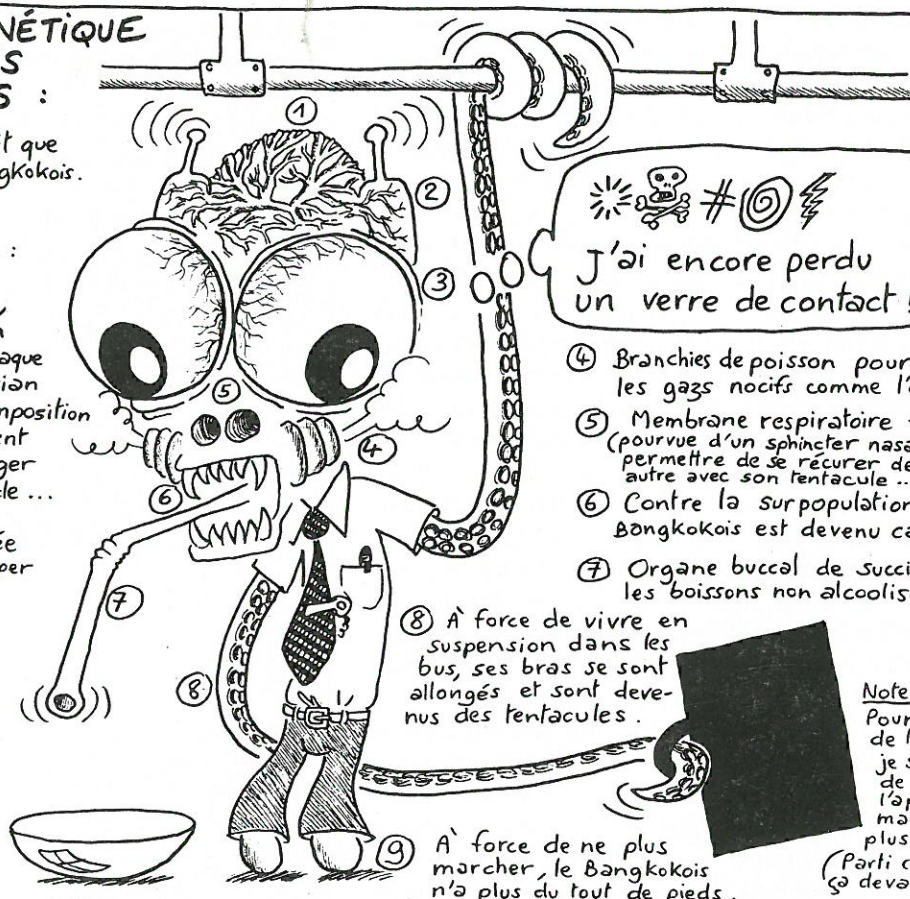 NÉTIQUE
S
S :
t que
gkokois.
:
aque
ian
mposition
ent
ger
le ...
ée
per
①
②
③
④
⑤
⑥
⑦
⑧
J'ai encore perdu
un verre de contact !
④ Branchies de poisson pour
les gazs nocifs comme l'
⑤ Membrane respiratoire
(pourvue d'un sphincter nasa
permettre de se récurer de
autre avec son tentacule ...
⑥ Contre la surpopulation
Bangkokois est devenu ca
⑦ Organe buccal de succi
les boissons non alcoolis
⑧ À force de vivre en
suspension dans les
bus, ses bras se sont
allongés et sont deve-
nus des tentacules.
⑨ À force de ne plus
marcher, le Bangkokois
n'a plus du tout de pieds.
Note
Pour
de l
je s
de
l'ap
ma
plus
(Parti c
ça deva